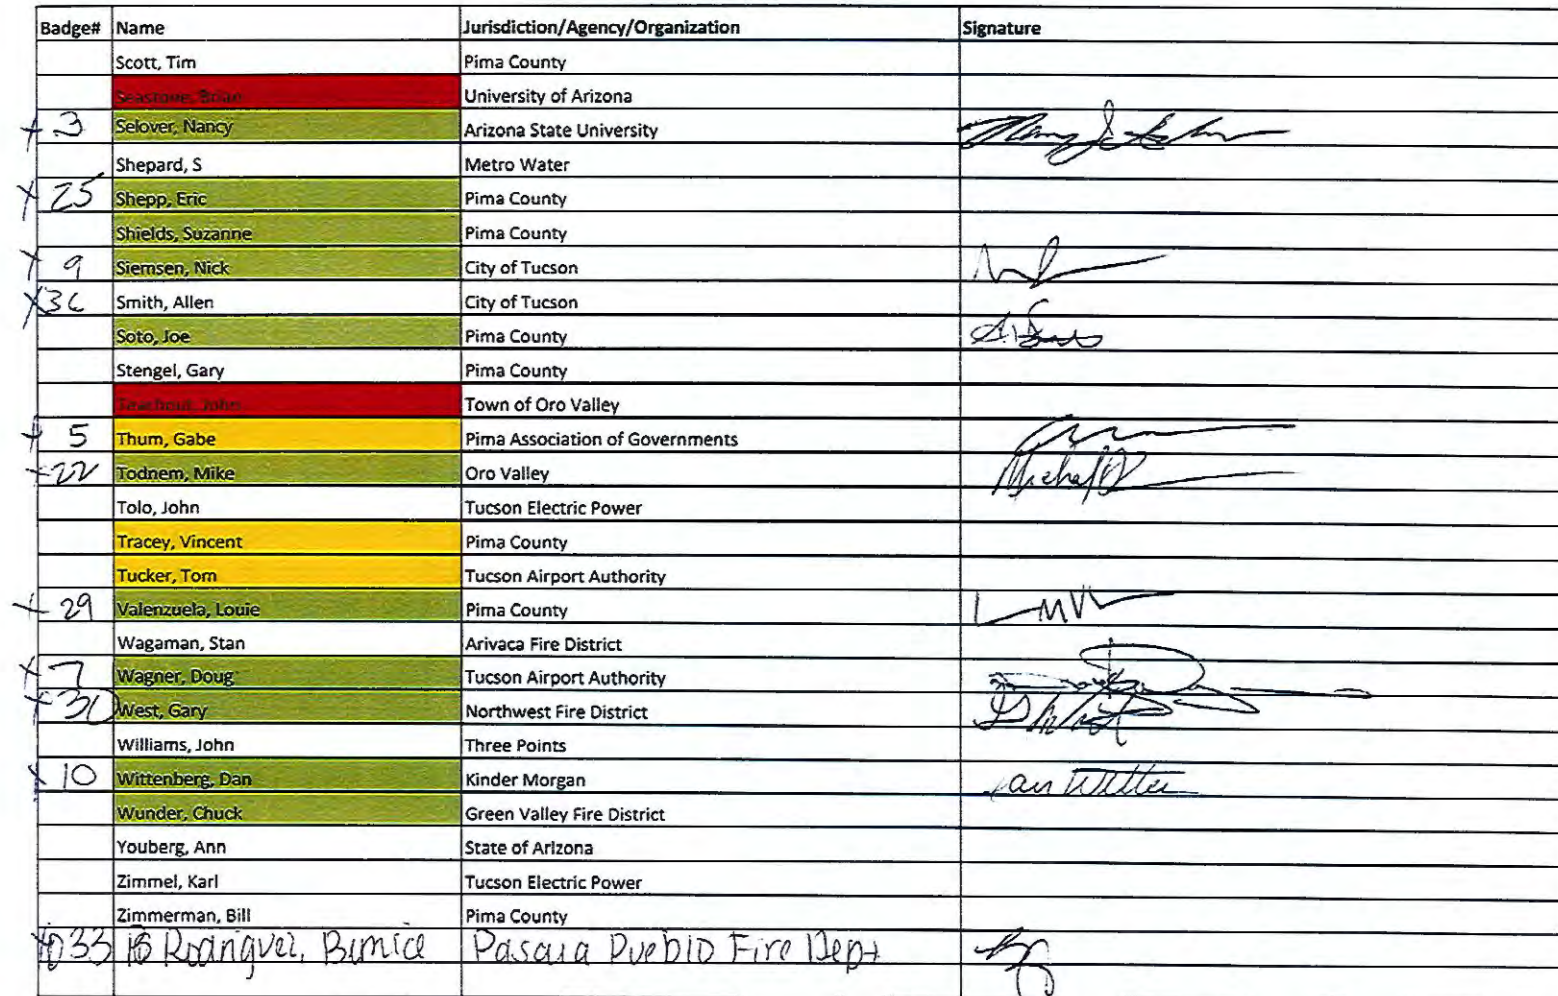 Badge# Name Jurisdiction/Agency/Organization Signature
Scott, Tim Pima County
Seastone, Brian University of Arizona
x 3 Selover, Nancy Arizona State University
Shepard, S Metro Water
x 25 Shepp, Eric Pima County
Shields, Suzanne Pima County
x 9 Siemsen, Nick City of Tucson
Smith, Allen City of Tucson
Soto, Joe Pima County
Stengel, Gary Pima County
Teachout, John Town of Oro Valley
x 5 Thum, Gabe Pima Association of Governments
x 22 Todnem, Mike Oro Valley
Tolo, John Tucson Electric Power
Tracey, Vincent Pima County
Tucker, Tom Tucson Airport Authority
x 29 Valenzuela, Louie Pima County
Wagaman, Stan Arivaca Fire District
x 7 Wagner, Doug Tucson Airport Authority
West, Gary Northwest Fire District
Williams, John Three Points
x 10 Wittenberg, Dan Kinder Morgan
Wunder, Chuck Green Valley Fire District
Youberg, Ann State of Arizona
Zimmel, Karl Tucson Electric Power
Zimmerman, Bill Pima County
33 Pueblo Fire Dept